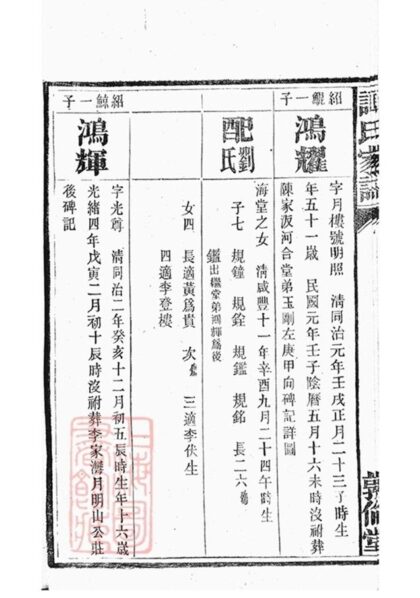 譚氏家譜
敦倫堂
紹鑨一子
鴻耀
字月樓號明照 清同治元年壬戌正月二十三子時生
年五十一歲 民國元年壬子陰曆五月十六未時沒祔葬
陳家沠河合堂弟玉剛左庚甲向碑記詳圖
配劉氏
海堂之女 清咸豐十一年辛酉九月二十四午時生
子七 規鐘 規銓 規鑑 規銘 長二六殤
鑑出繼堂弟鴻輝爲後
女四 長適黃爲貴 次殤 三適李伏生
四適李登樓
紹鯨一子
鴻輝
字光尊 清同治二年癸亥十二月初五辰時生年十六歲
光緒四年戊寅二月初十辰時沒祔葬李家灣月明山公莊
後碑記